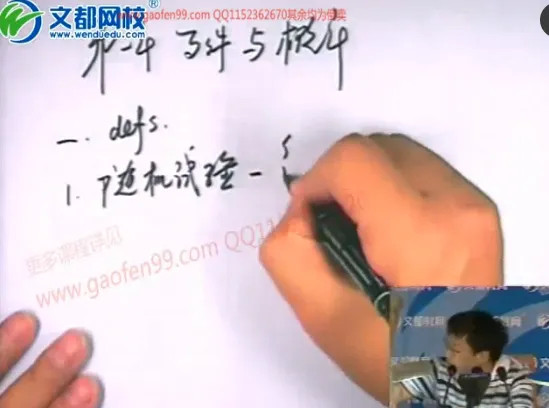 文都网校
www.wenduedu.com
www.gaofen99.com QQ1152362670其余均为倒卖
第一章 事件与概率
一. defs.
1. 随机试验 —
更多课程详见
www.gaofen99.com QQ115
文都教育